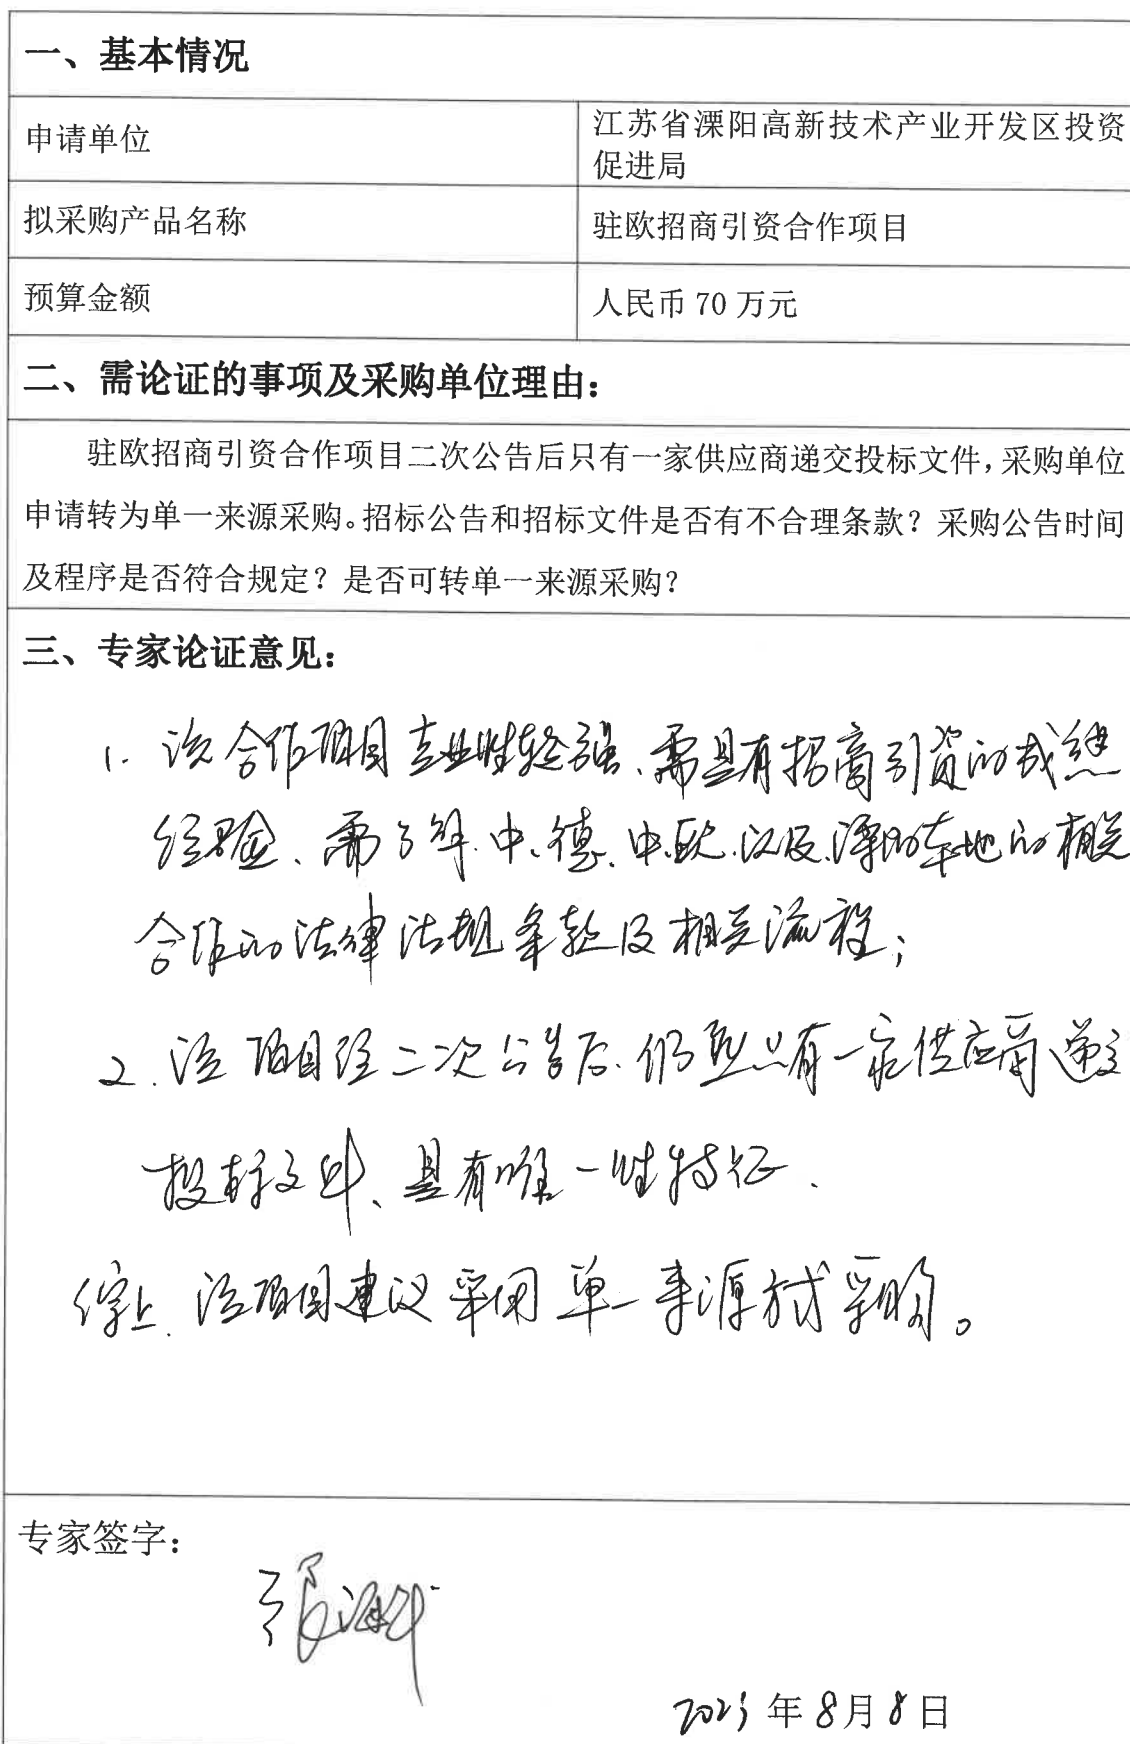 一、基本情况
申请单位
江苏省溧阳高新技术产业开发区投资
促进局
拟采购产品名称
驻欧招商引资合作项目
预算金额
人民币 70 万元
二、需论证的事项及采购单位理由：
驻欧招商引资合作项目二次公告后只有一家供应商递交投标文件，采购单位
申请转为单一来源采购。招标公告和招标文件是否有不合理条款？采购公告时间
及程序是否符合规定？是否可转单一来源采购？
三、专家论证意见：
1. 该合作项目专业性较强、需具有招商引资的成熟
经验、需了解中、德、中欧以及溧阳本地的相关
合作的法律法规条款及相关流程；
2. 该项目经二次公告后、仍然只有一家供应商递交
投标文件、具有唯一性特征.
综上、该项目建议采用单一来源方式采购。
专家签字：
2023 年 8 月 8 日